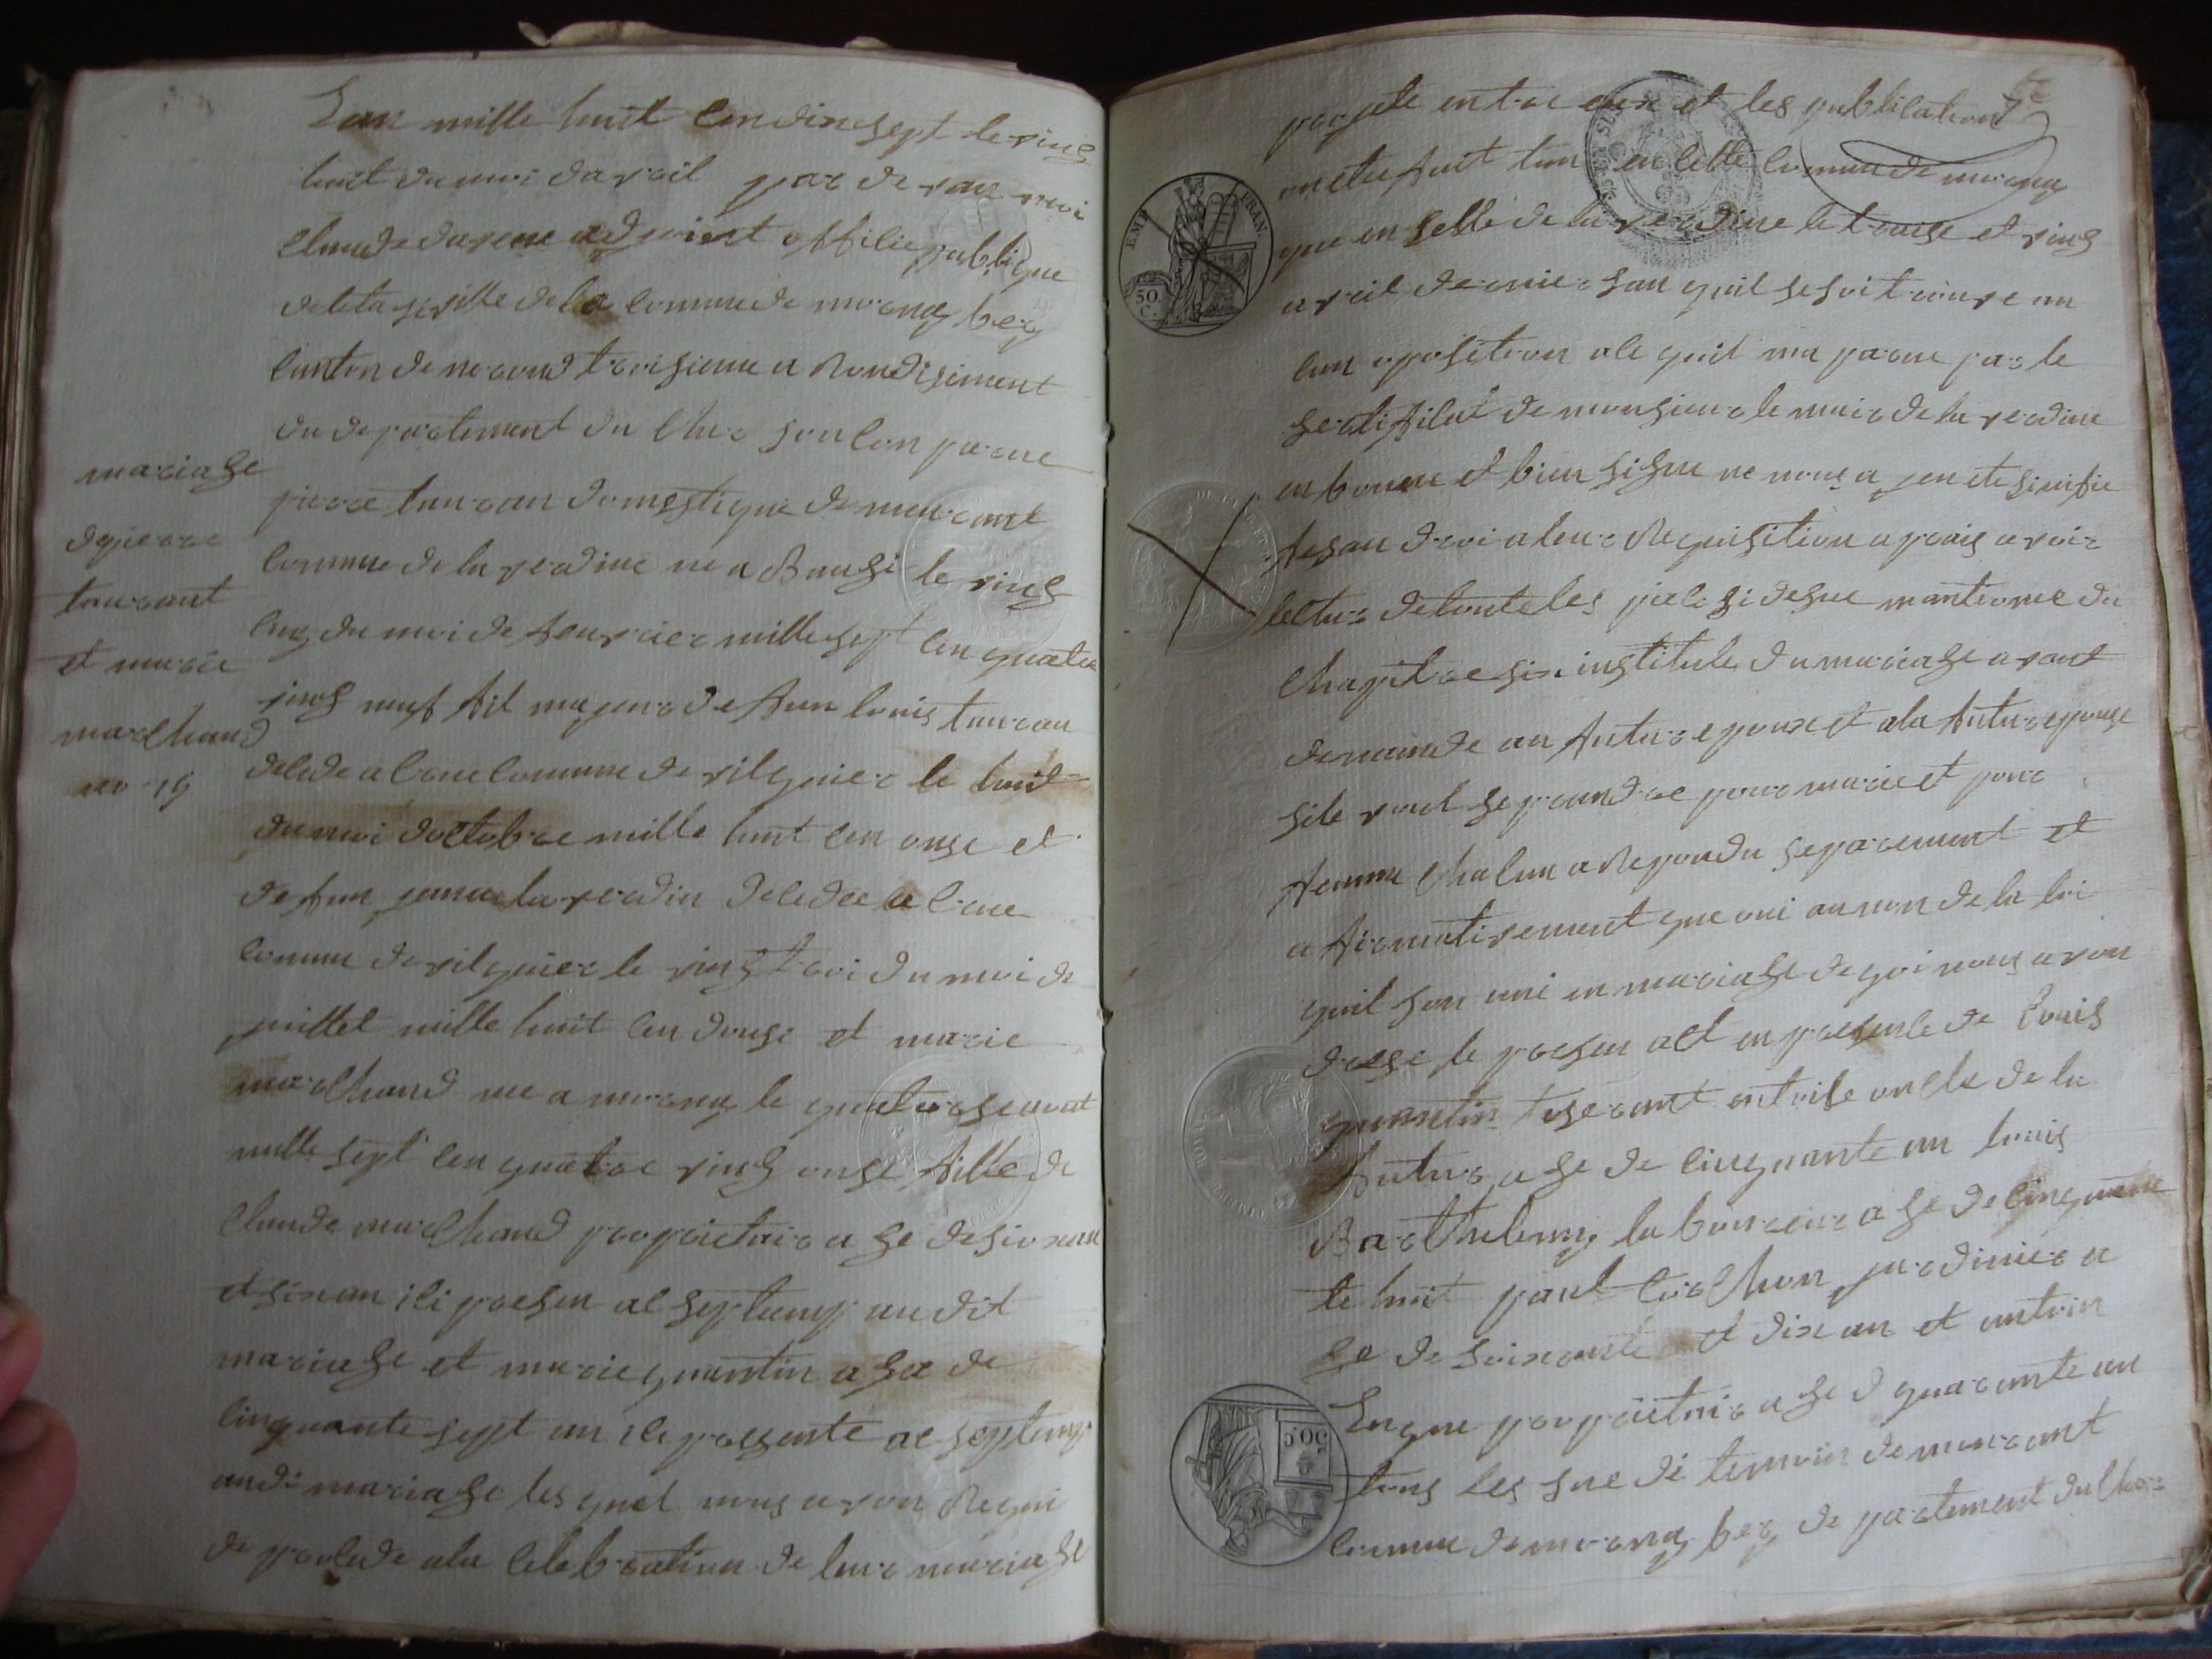 Lan mille huit Cen dixsept le ving
huit du moi davril par de van moi
Claude adjoient offisie publique
de leta siville de la Commune de mornay bery
Canton de troisieme a Rondisiment
du departement du Cher son Con parue
piere tauran domestique demeurant
Commune de la verdine ne a Baugi le ving
cinq du moi de feuvrier mille sept Cen quatre
ving neuf fil majeur de feun louis tauran
delede a Commune de vilquier le huit
du moi doctobre mille huit Cen onse et
de feun janne la verdin deledee a
Comune de vilquier le vingt troi du moi de
juillet mille huit Cen douse et marie
marChand nee a mornay le quatorse aout
mille sept Cen quatre ving onse fille de
Claude marChand propriettair a ge de soixante
et six an ici presen acseptemp au dit
mariage et marie quantin a gee de
cinquante sept an ici presente acseptemp
audi mariage les quel nous avon Requi
de prosede ala Celebration de leur mariage
mariage
de piere
taurant
et marie
marChand
no 19
projete entre eux et les publication
on ete fait tan en Cette Commune de mornay
que en Celle de la verdine le treise et ving
avril dernier san quil se soit trouve au
Cun oposition a Ce quil ma parue par le
sertifiCat de monsieur le maire de la verdine
en bonne et bien signe ne nous a pen ete sinifie
fesan droi a leur Requisition aprais avoir
lectur de toute les piese si desue mantionne du
Chapitre six institule du mariage avont
demande au futur epoux et ala futur epouse
sile veul se prandre pour marie et pour
femme ChaCun a Repondu separement et
afirmativement que oui au nom de la loi
quil son uni en mariage de qoi nous avon
drese le presen act en presence de louis
quantin tiserant onCle de la
futur age de cinquante an louis
BarThelemy laboureur age de cinquante
te huit paul jardinier a
ge de soixante et dix an et antoin
propriettair age d quarante an
tous les sue di temoin demeurant
Commune de mornay bery departement du Cher
EMP. FRAN.
50. C.
50. C.